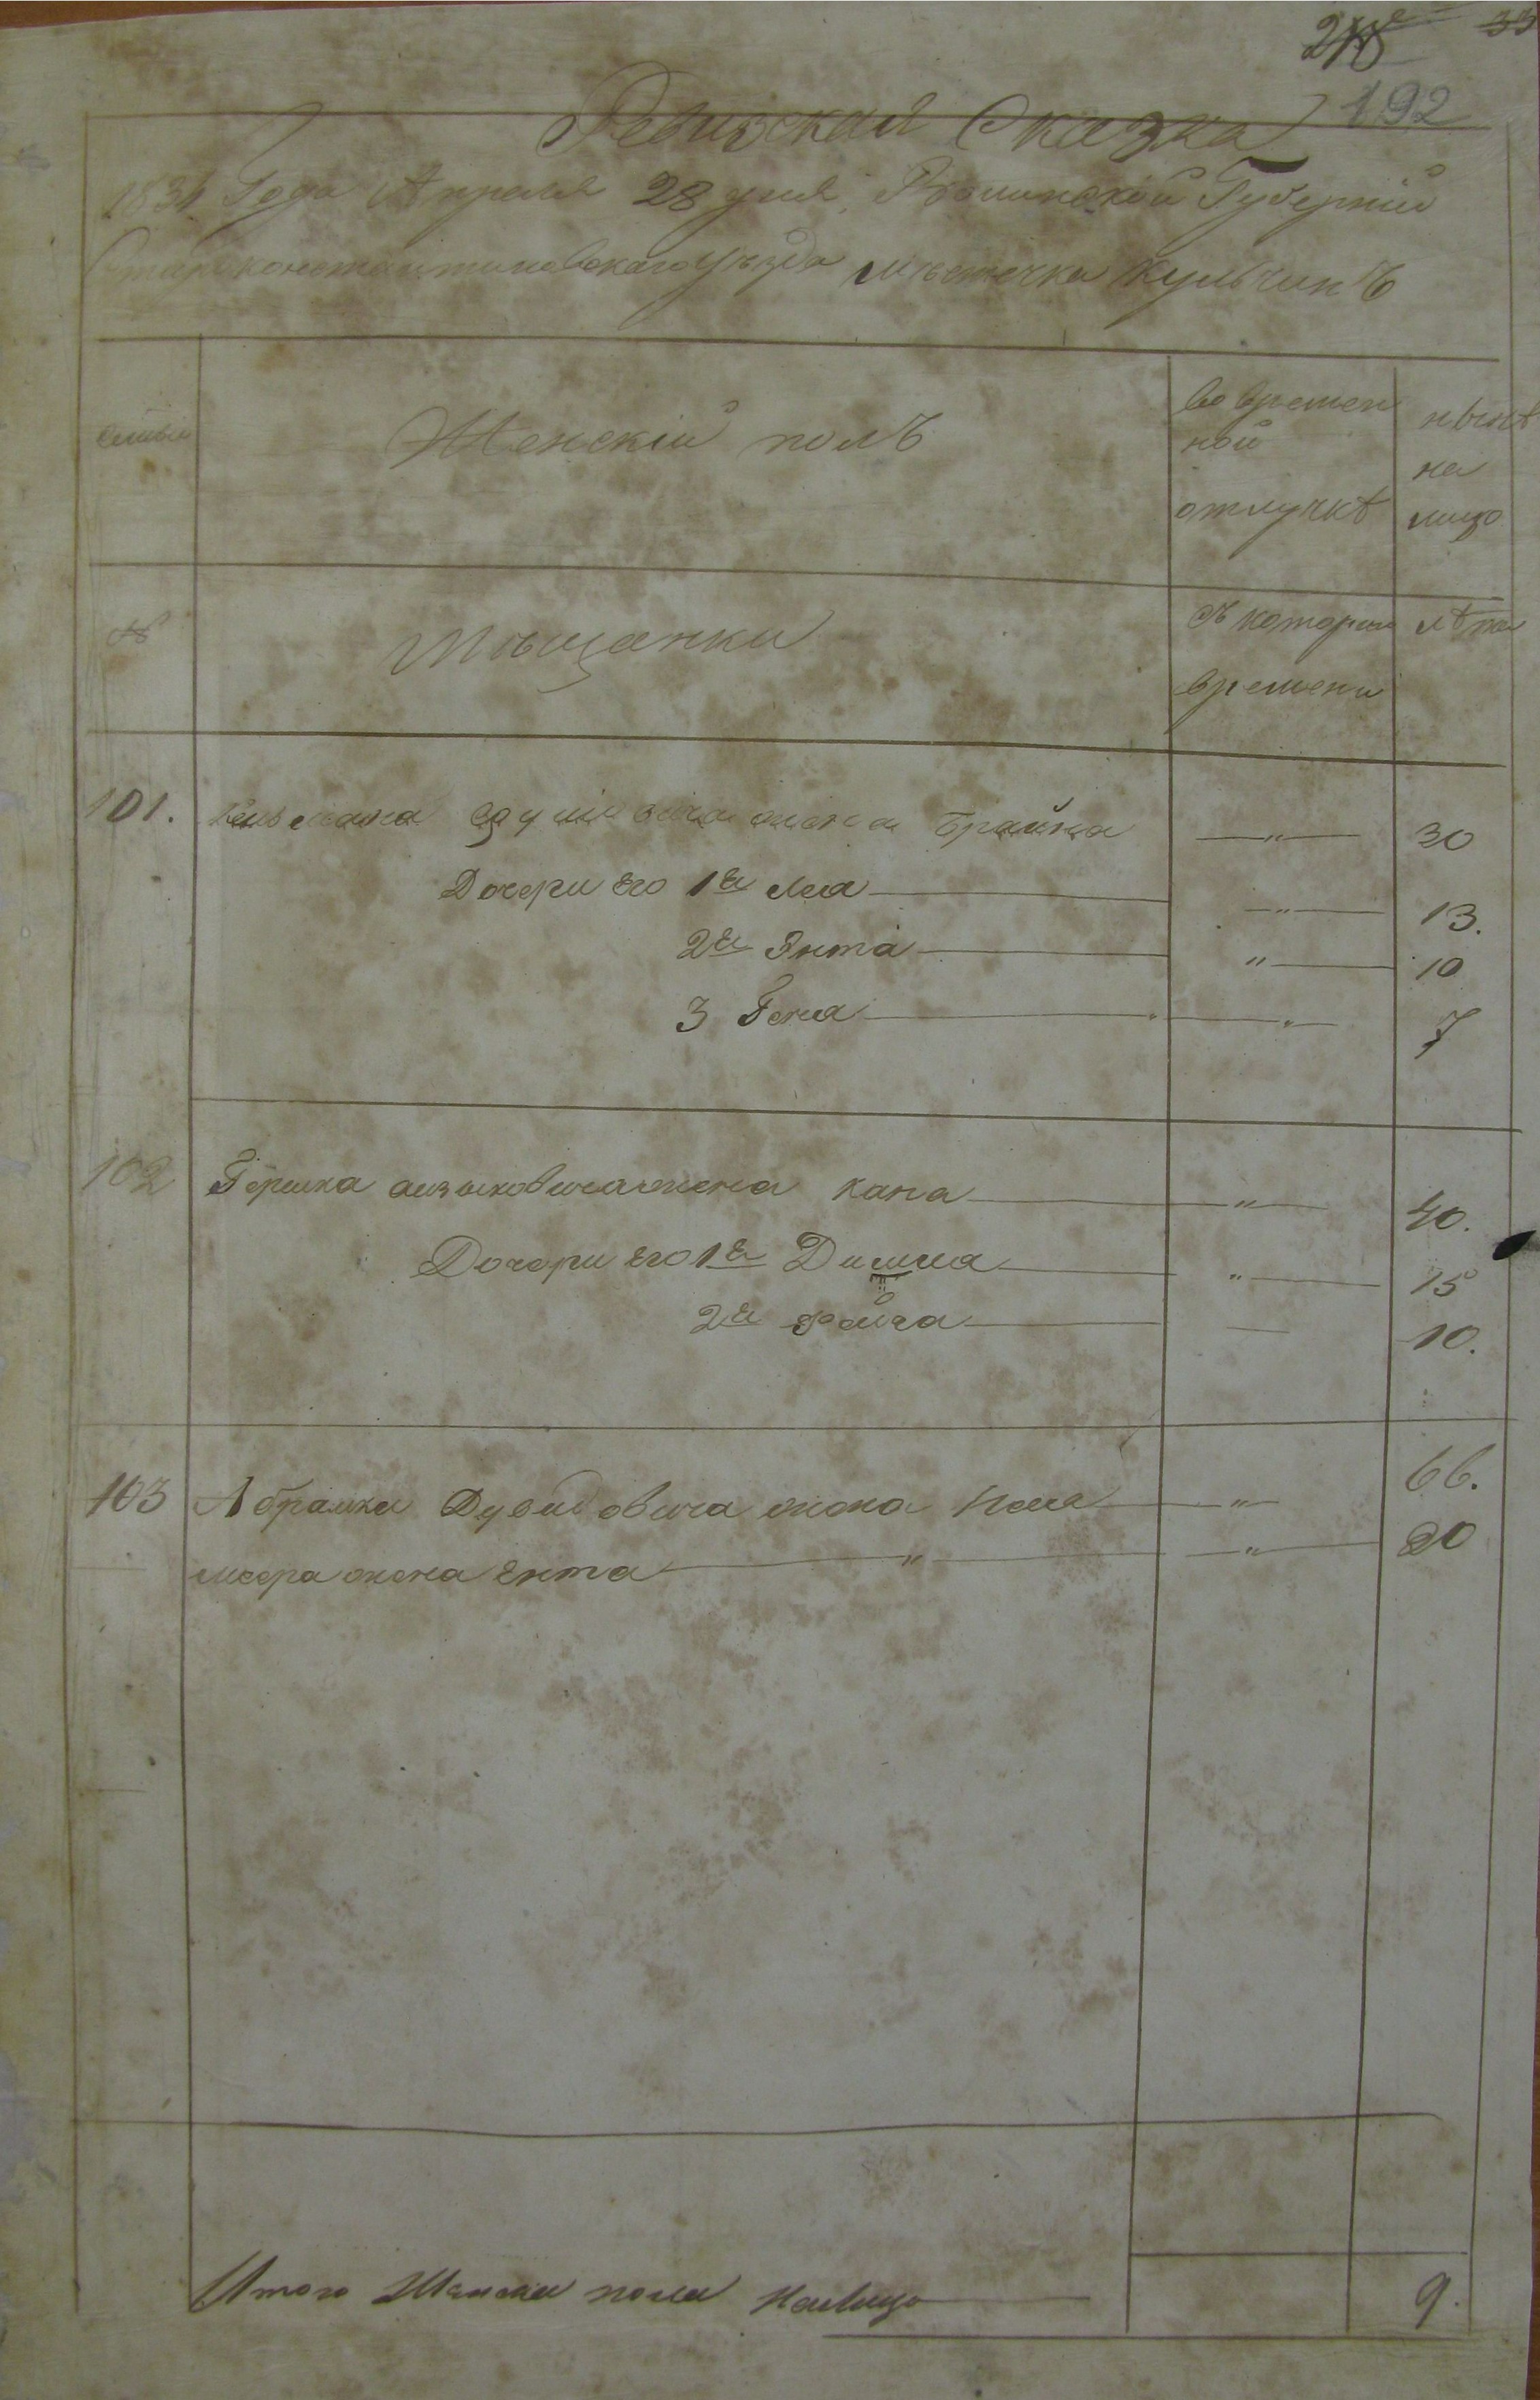 192
Ревизская Сказка
1834 Года Апреля 28 дня Волинской Губернїи
Староконстантиновскаго уѣзда мѣстечка Кульчинъ
семьи
Женскій полъ
во времен
ной
отлучкѣ
нынѣ
на
лицо
№
Мѣщанки
съ которого
времени
лѣта
101. жена Брайна — " — 30
Дочери его 1я Лея — " — 13.
2я Энта — " — 10
3 Геня — " — 7
102 Гершка жена Хана — " — 40.
Дочери его 1я — " — 15
2я Фейга — 10.
103 Абрамки Дувидовича жена — " — 66.
жена Ента — " — " — 20
Итого Женска пола налицо — 9.